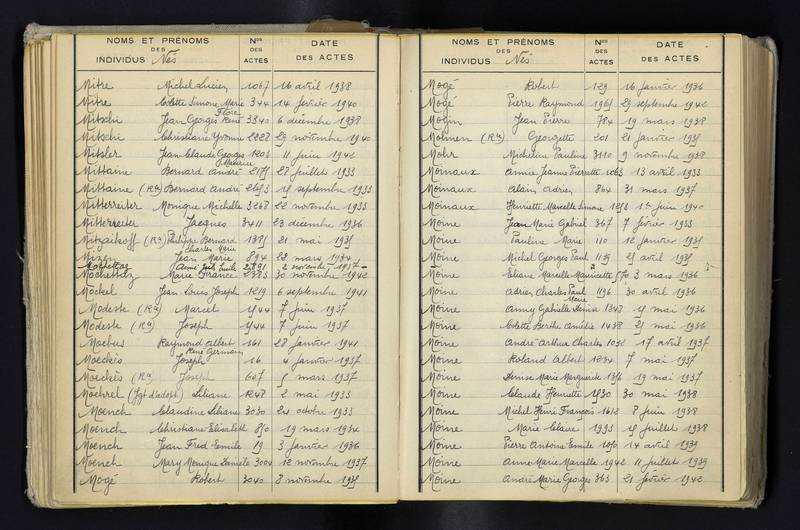 NOMS ET PRÉNOMS
DES
INDIVIDUS Nés
Nos
DES
ACTES
DATE
DES ACTES
Mitre Michel Lucien 1067 16 avril 1938
Mitre Colette Simone Marie 344 14 février 1940
Flore
Mitschi Jean Georges René 3340 6 décembre 1938
Mitschi Christiane Yvonne 2328 29 novembre 1940
Mitsler Jean Claude Georges 1206 11 juin 1942
Maurice
Mittaine Bernard André 2175 28 juillet 1933
Mittaine (Rn) Bernard André 15 septembre 1933
Mitterreiter Monique Michelle 3268 22 novembre 1933
Mitterreiter Jacques 3411 23 décembre 1936
(Rn) Philippe Bernard 1381 21 mai 1935
Charles Marie
Jean Marie 894 28 mars 1934
2 novembre 1937
Marie France 2333 30 novembre 1942
Möckel Jean Louis Joseph 1219 6 septembre 1941
Modeste (Rn) Marcel 1544 7 juin 1937
Modeste (Rn) Joseph 1544 7 juin 1937
Moebus Raymond Albert 161 28 janvier 1941
René Germain
Moeckès Joseph 16 4 janvier 1937
Moeckès (Rn) Joseph 607 5 mars 1937
Moehrel (Jgt d'adopt) Liliane 1248 2 mai 1933
Moench Claudine Liliane 3030 24 octobre 1933
Moench Christiane Elisabeth 850 19 mars 1934
Moench Jean Fred Emile 19 3 janvier 1936
Moench Mary Monique 3004 12 novembre 1937
Mogé Robert 3040 8 novembre 1935
NOMS ET PRÉNOMS
DES
INDIVIDUS Nés
Nos
DES
ACTES
DATE
DES ACTES
Mogé Robert 129 16 janvier 1936
Mogé Pierre Raymond 1965 29 septembre 1942
Mogin Jean Pierre 784 19 mars 1938
(Rn) Georgette 201 21 janvier 1935
Mohr Micheline Pauline 3110 9 novembre 1938
Moinaux Annie Jeanne Pierrette 1063 13 avril 1933
Moinaux Alain Adrien 864 31 mars 1937
Moinaux Henriette Marcelle Simone 1er juin 1940
Moine Jean Marie Gabriel 367 7 février 1933
Moine Pauline Marie 110 12 janvier 1935
Moine Michel Georges Paul 1139 25 avril 1935
Moine Eliane Marcelle Mauricette 570 3 mars 1936
Moine Adrien Charles Paul 1196 30 avril 1936
Marie
Moine Anny Gabrielle Denise 1343 15 mai 1936
Moine Colette Berthe Amélie 1438 25 mai 1936
Moine André Arthur Charles 1032 17 avril 1937
Moine Roland Albert 1234 7 mai 1937
Moine Denise Marie Marguerite 1356 19 mai 1937
Moine Claude Henriette 1530 30 mai 1938
Moine Michel Henri François 1612 8 juin 1938
Moine Marie Claire 1993 15 juillet 1938
Moine Pierre Antoine Emile 1050 14 avril 1939
Moine Anne Marie Marcelle 1942 11 juillet 1939
Moine André Marie Georges 363 21 février 1942